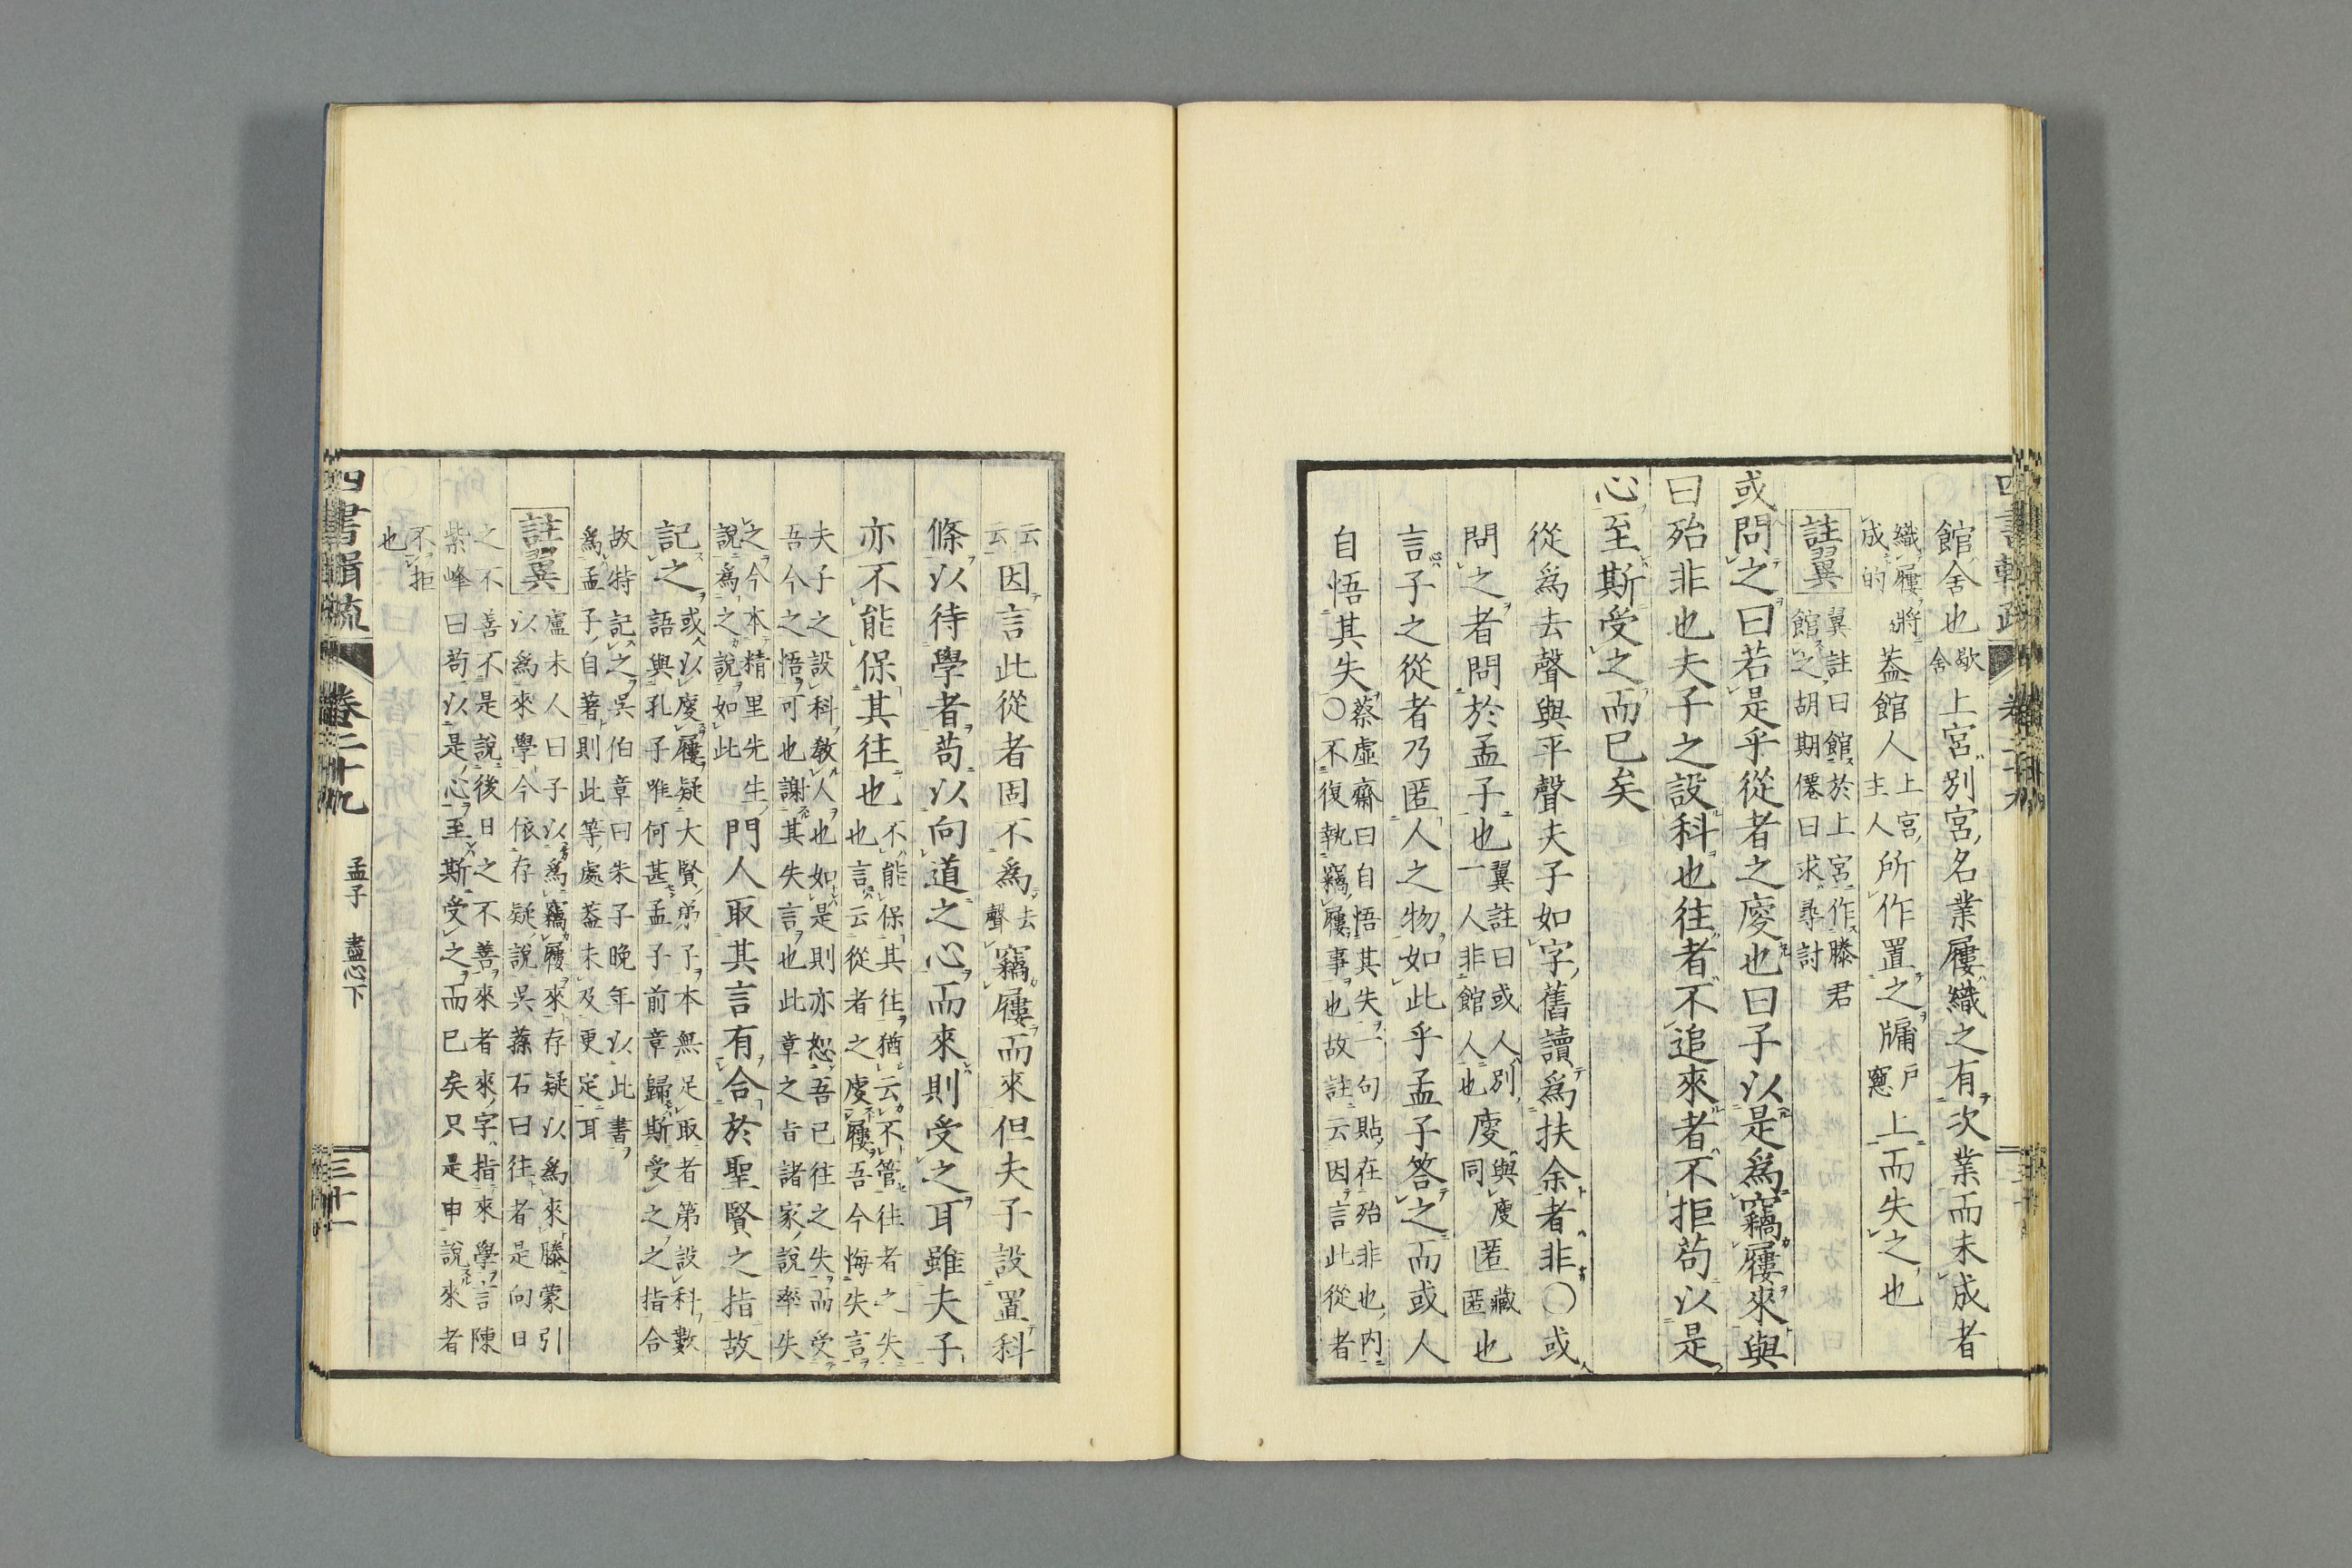 館舍也歇舍上宮別宮名業屨織之有次業而未成者
織屨將成的蓋館人上宮主人所作置之牖戶窻上而失之也
註翼翼註曰館於上宮作滕君館之胡期僊曰求尋討
或問之曰若是乎從者之廋也曰子以是爲竊屨來與
曰殆非也夫子之設科也往者不追來者不拒苟以是
心至斯受之而已矣
從爲去聲與平聲夫子如字舊讀爲扶余者非〇或
問之者問於孟子也翼註曰或人別一人非館人也廋與廋同匿藏匿也
言子之從者乃匿人之物如此乎孟子答之而或人
自悟其失蔡虛齋曰自悟其失一句貼在殆非也內〇不復執竊屨事也故註云因言此從者
云云因言此從者固不爲去聲竊屨而來但夫子設置科
條以待學者苟以向道之心而來則受之耳雖夫子
亦不能保其往也不能保其往猶云不管往者之失也言云從者之廋屨吾今悔失言
夫子之設科教人也如是則亦恕吾已往之失而受吾今之悟可也謝其失言也此章之旨諸家說率失
之今本精里先生說爲之說如此門人取其言有合於聖賢之指故
記之或以廋屨疑大賢弟子本無足取者第設科數語與孔子唯何甚孟子前章歸斯受之之指合
故特記之吳伯章曰朱子晚年以此書爲孟子自著則此等處蓋未及更定耳
註翼盧未人曰子以爲竊屨來存疑以爲來滕蒙引以爲來學今依存疑說吳蓀石曰往者是向日
之不善不是說後日之不善來者來字指來學言陳紫峰曰苟以是心至斯受之而已矣只是申說來者
不拒也
四書輯疏 卷二十九 孟子 盡心下 三十一